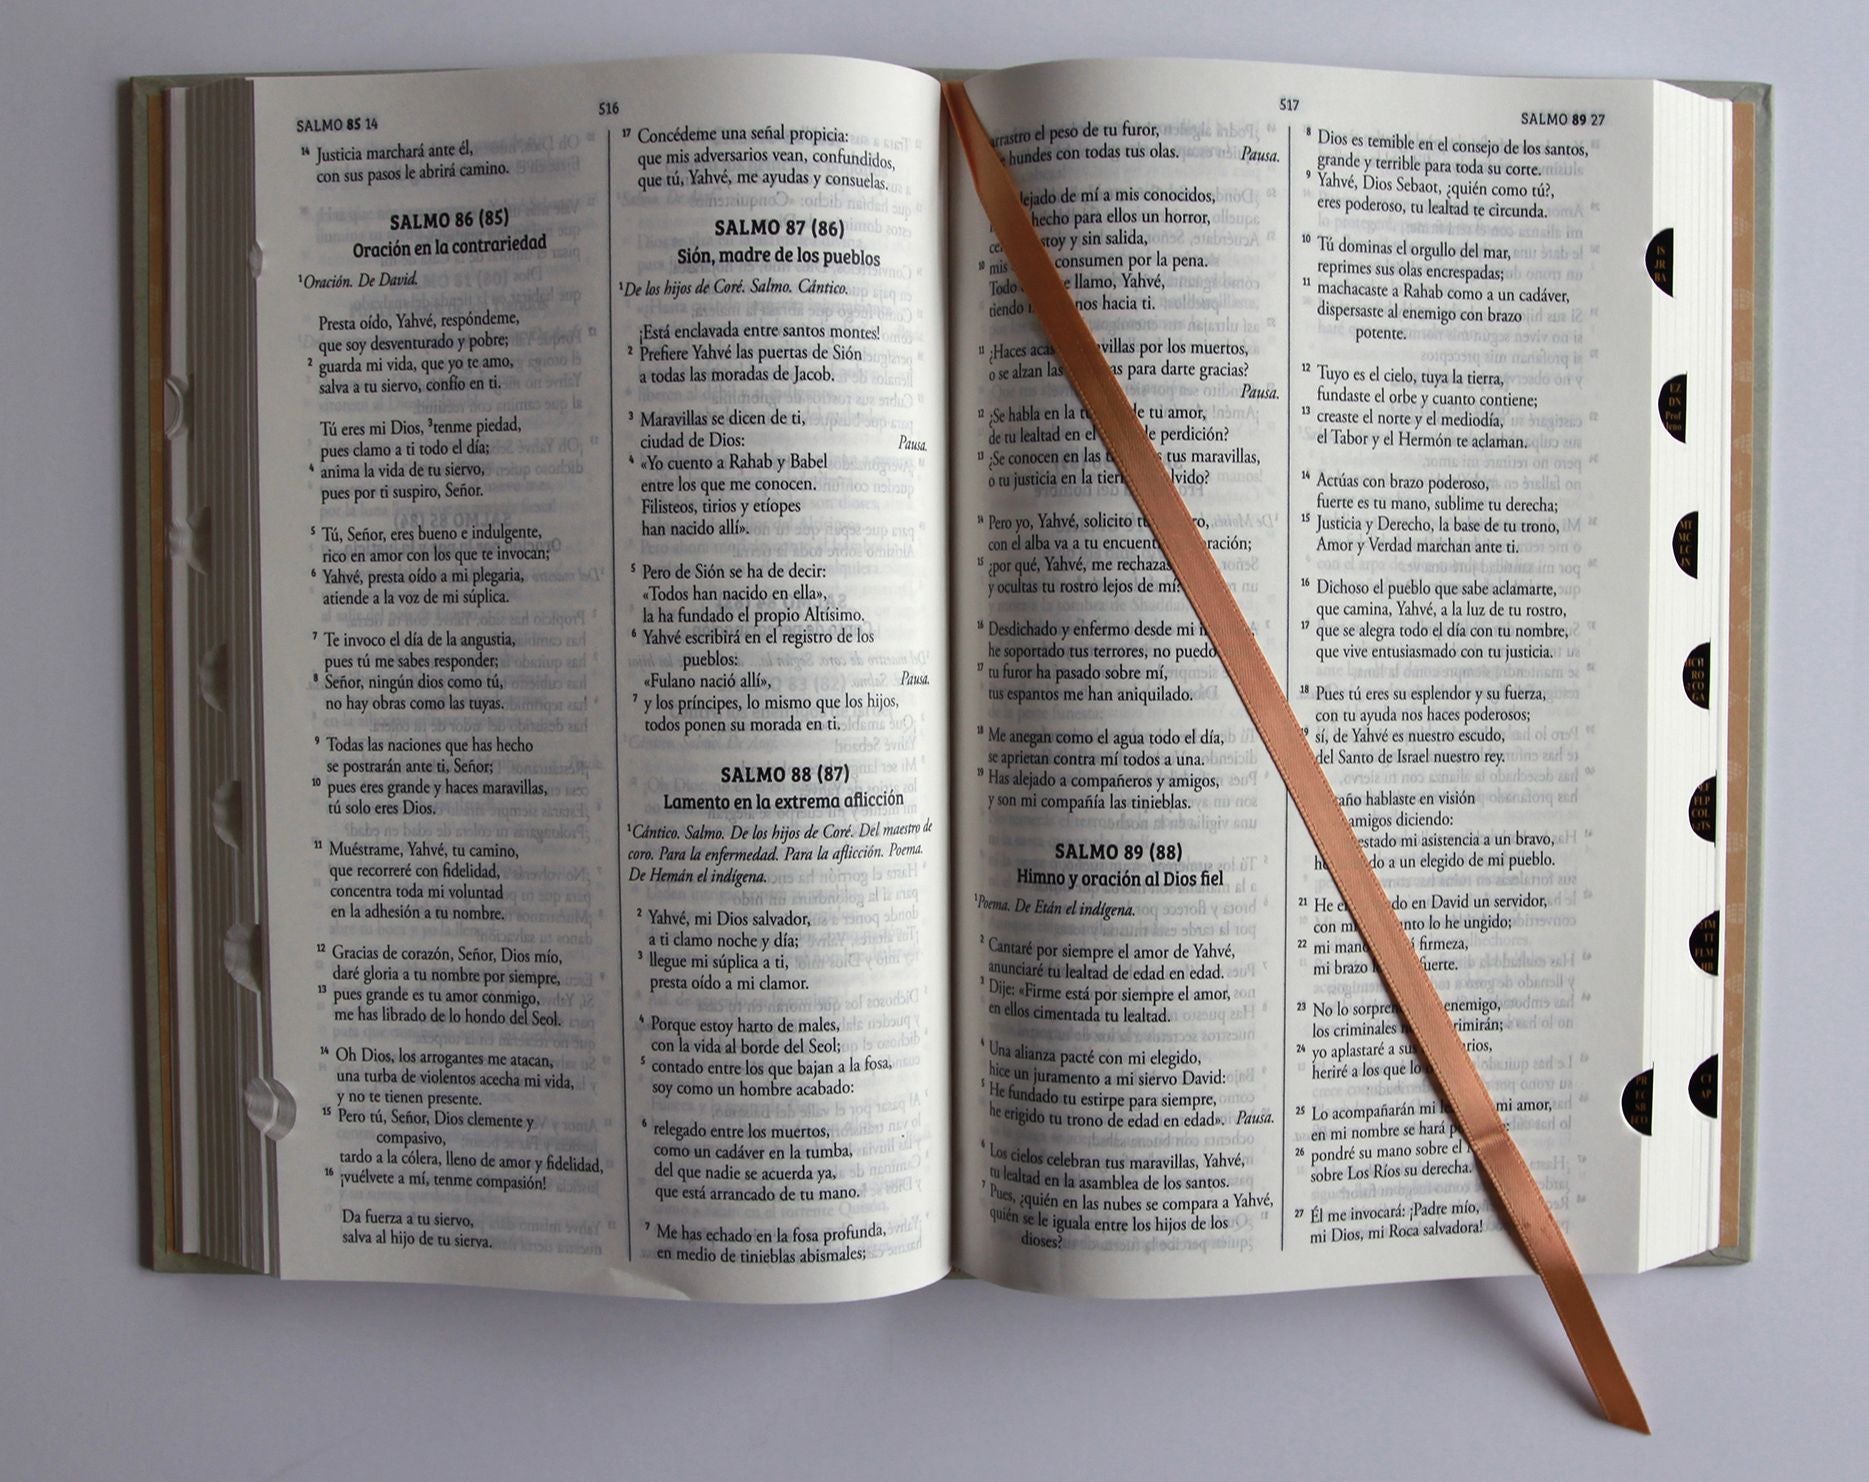 516
SALMO 85 14
14 Justicia marchará ante él,
con sus pasos le abrirá camino.
SALMO 86 (85)
Oración en la contrariedad
1 Oración. De David.
Presta oído, Yahvé, respóndeme,
que soy desventurado y pobre;
2 guarda mi vida, que yo te amo,
salva a tu siervo, confío en ti.
Tú eres mi Dios, 3 tenme piedad,
pues clamo a ti todo el día;
4 anima la vida de tu siervo,
pues por ti suspiro, Señor.
5 Tú, Señor, eres bueno e indulgente,
rico en amor con los que te invocan;
6 Yahvé, presta oído a mi plegaria,
atiende a la voz de mi súplica.
7 Te invoco el día de la angustia,
pues tú me sabes responder;
8 Señor, ningún dios como tú,
no hay obras como las tuyas.
9 Todas las naciones que has hecho
se postrarán ante ti, Señor;
10 pues eres grande y haces maravillas,
tú solo eres Dios.
11 Muéstrame, Yahvé, tu camino,
que recorreré con fidelidad,
concentra toda mi voluntad
en la adhesión a tu nombre.
12 Gracias de corazón, Señor, Dios mío,
daré gloria a tu nombre por siempre,
13 pues grande es tu amor conmigo,
me has librado de lo hondo del Seol.
14 Oh Dios, los arrogantes me atacan,
una turba de violentos acecha mi vida,
y no te tienen presente.
15 Pero tú, Señor, Dios clemente y
compasivo,
tardo a la cólera, lleno de amor y fidelidad,
16 ¡vuélvete a mí, tenme compasión!
Da fuerza a tu siervo,
salva al hijo de tu sierva.
17 Concédeme una señal propicia:
que mis adversarios vean, confundidos,
que tú, Yahvé, me ayudas y consuelas.
SALMO 87 (86)
Sión, madre de los pueblos
1 De los hijos de Coré. Salmo. Cántico.
¡Está enclavada entre santos montes!
2 Prefiere Yahvé las puertas de Sión
a todas las moradas de Jacob.
3 Maravillas se dicen de ti,
ciudad de Dios: Pausa.
4 «Yo cuento a Rahab y Babel
entre los que me conocen.
Filisteos, tirios y etíopes
han nacido allí».
5 Pero de Sión se ha de decir:
«Todos han nacido en ella»,
la ha fundado el propio Altísimo.
6 Yahvé escribirá en el registro de los
pueblos:
«Fulano nació allí», Pausa.
7 y los príncipes, lo mismo que los hijos,
todos ponen su morada en ti.
SALMO 88 (87)
Lamento en la extrema aflicción
1 Cántico. Salmo. De los hijos de Coré. Del maestro de
coro. Para la enfermedad. Para la aflicción. Poema.
De Hemán el indígena.
2 Yahvé, mi Dios salvador,
a ti clamo noche y día;
3 llegue mi súplica a ti,
presta oído a mi clamor.
4 Porque estoy harto de males,
con la vida al borde del Seol;
5 contado entre los que bajan a la fosa,
soy como un hombre acabado:
6 relegado entre los muertos,
como un cadáver en la tumba,
del que nadie se acuerda ya,
que está arrancado de tu mano.
7 Me has echado en la fosa profunda,
en medio de tinieblas abismales;
517
SALMO 89 27
arrastro el peso de tu furor,
hundes con todas tus olas. Pausa.
de mí a mis conocidos,
hecho para ellos un horror,
estoy y sin salida,
10 mis consumen por la pena.
Todo llamo, Yahvé,
tiendo hacia ti.
11 ¿Haces por los muertos,
o se alzan las para darte gracias?
Pausa.
12 ¿Se habla en la de tu amor,
de tu lealtad en el de perdición?
13 ¿Se conocen en las tus maravillas,
o tu justicia en la
14 Pero yo, Yahvé, solicito
con el alba va a tu
15 ¿por qué, Yahvé, me rechazas
y ocultas tu rostro lejos de mí?
16 Desdichado y enfermo desde mi
he soportado tus terrores, no puedo
17 tu furor ha pasado sobre mí,
tus espantos me han aniquilado.
18 Me anegan como el agua todo el día,
se aprietan contra mí todos a una.
19 Has alejado a compañeros y amigos,
y son mi compañía las tinieblas.
SALMO 89 (88)
Himno y oración al Dios fiel
1 Poema. De Etán el indígena.
2 Cantaré por siempre el amor de Yahvé,
anunciaré tu lealtad de edad en edad.
3 Dije: «Firme está por siempre el amor,
en ellos cimentada tu lealtad.
4 Una alianza pacté con mi elegido,
hice un juramento a mi siervo David:
5 He fundado tu estirpe para siempre,
he erigido tu trono de edad en edad». Pausa.
6 Los cielos celebran tus maravillas, Yahvé,
tu lealtad en la asamblea de los santos.
7 Pues, ¿quién en las nubes se compara a Yahvé,
quién se le iguala entre los hijos de los
dioses?
8 Dios es temible en el consejo de los santos,
grande y terrible para toda su corte.
9 Yahvé, Dios Sebaot, ¿quién como tú?,
eres poderoso, tu lealtad te circunda.
10 Tú dominas el orgullo del mar,
reprimes sus olas encrespadas;
11 machacaste a Rahab como a un cadáver,
dispersaste al enemigo con brazo
potente.
12 Tuyo es el cielo, tuya la tierra,
fundaste el orbe y cuanto contiene;
13 creaste el norte y el mediodía,
el Tabor y el Hermón te aclaman.
14 Actúas con brazo poderoso,
fuerte es tu mano, sublime tu derecha;
15 Justicia y Derecho, la base de tu trono,
Amor y Verdad marchan ante ti.
16 Dichoso el pueblo que sabe aclamarte,
que camina, Yahvé, a la luz de tu rostro,
17 que se alegra todo el día con tu nombre,
que vive entusiasmado con tu justicia.
18 Pues tú eres su esplendor y su fuerza,
con tu ayuda nos haces poderosos;
19 sí, de Yahvé es nuestro escudo,
del Santo de Israel nuestro rey.
hablaste en visión
amigos diciendo:
mi asistencia a un bravo,
a un elegido de mi pueblo.
21 He en David un servidor,
con lo he ungido;
22 mi mano firmeza,
mi brazo fuerte.
23 No lo enemigo,
los criminales
24 yo aplastaré a sus
heriré a los que lo
25 Lo acompañarán mi mi amor,
en mi nombre se hará
26 pondré su mano sobre el
sobre Los Ríos su derecha.
27 Él me invocará: ¡Padre mío,
mi Dios, mi Roca salvadora!
IS
JR
BA
EZ
DN
Prof
MT
MC
LC
JN
RO
GA
FLP
COL
TT
FLM
HB
CT
AP
PR
EC
SB